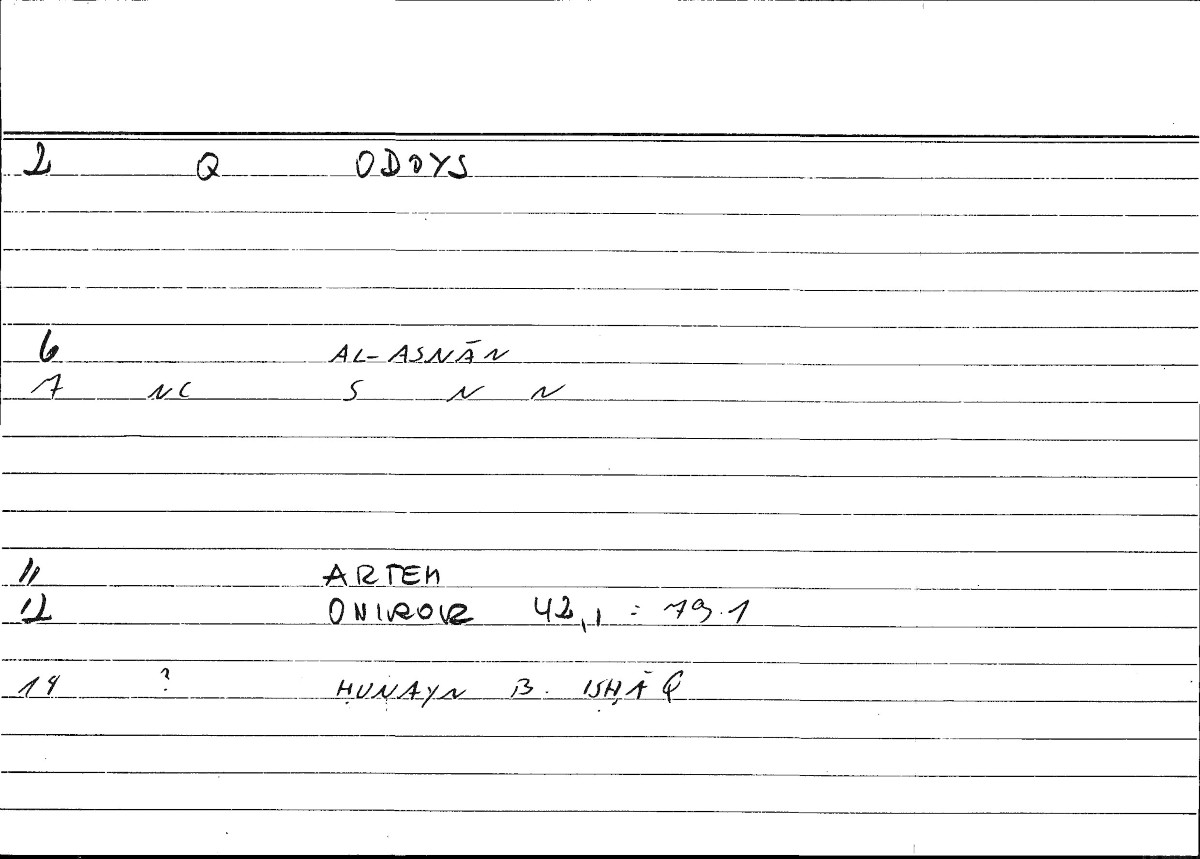 2 Q ODOYS
6 AL-ASNĀN
7 NC S N N
11 ARTEM
12 ONIROK 42,1 = 79.1
14 ? ḤUNAYN B. ISḤĀQ